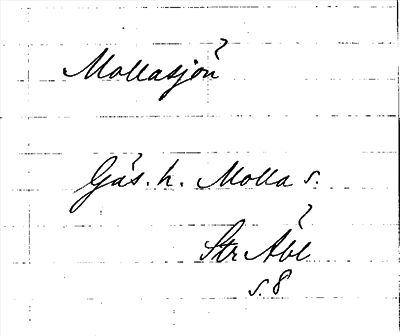 Mollasjön
Gäs. h. Molla s.
Str Åbl
s. 8